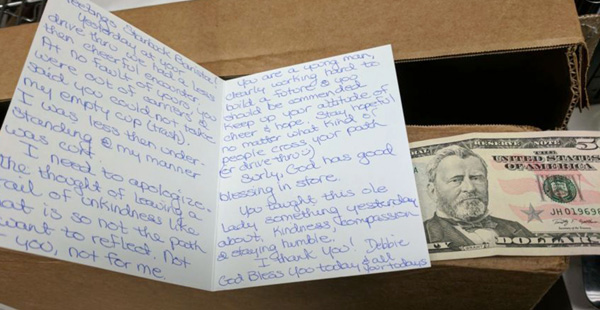 Greetings Starbuck Barista!
Yesterday at your
drive thru we had a less
than cheerful encounter.
At no fault of yours, you
were out of carriers &
said you could not take
my empty cup (trash).
I was less than under-
standing & my manner
was curt.
I need to apologize.
the thought of leaving a
trail of unkindness like
that is so not the path
I want to reflect. Not
you, not for me.
You are a young man,
clearly working hard to
build a future & you
should be commended.
Keep up your attitude of
cheer & hope. Stay hopeful
no matter what kind of
people cross your path
(or drive thru :)
Sorly, God has good
blessing in store.
You taught this ole
Lady something yesterday
about kindness, compassion
& staying humble.
I thank you! Debbie
God Bless you today & all
your todays
RESERVE NOTE
5
UNITED STATES
OF AMERICA
JH01969
DOLLARS